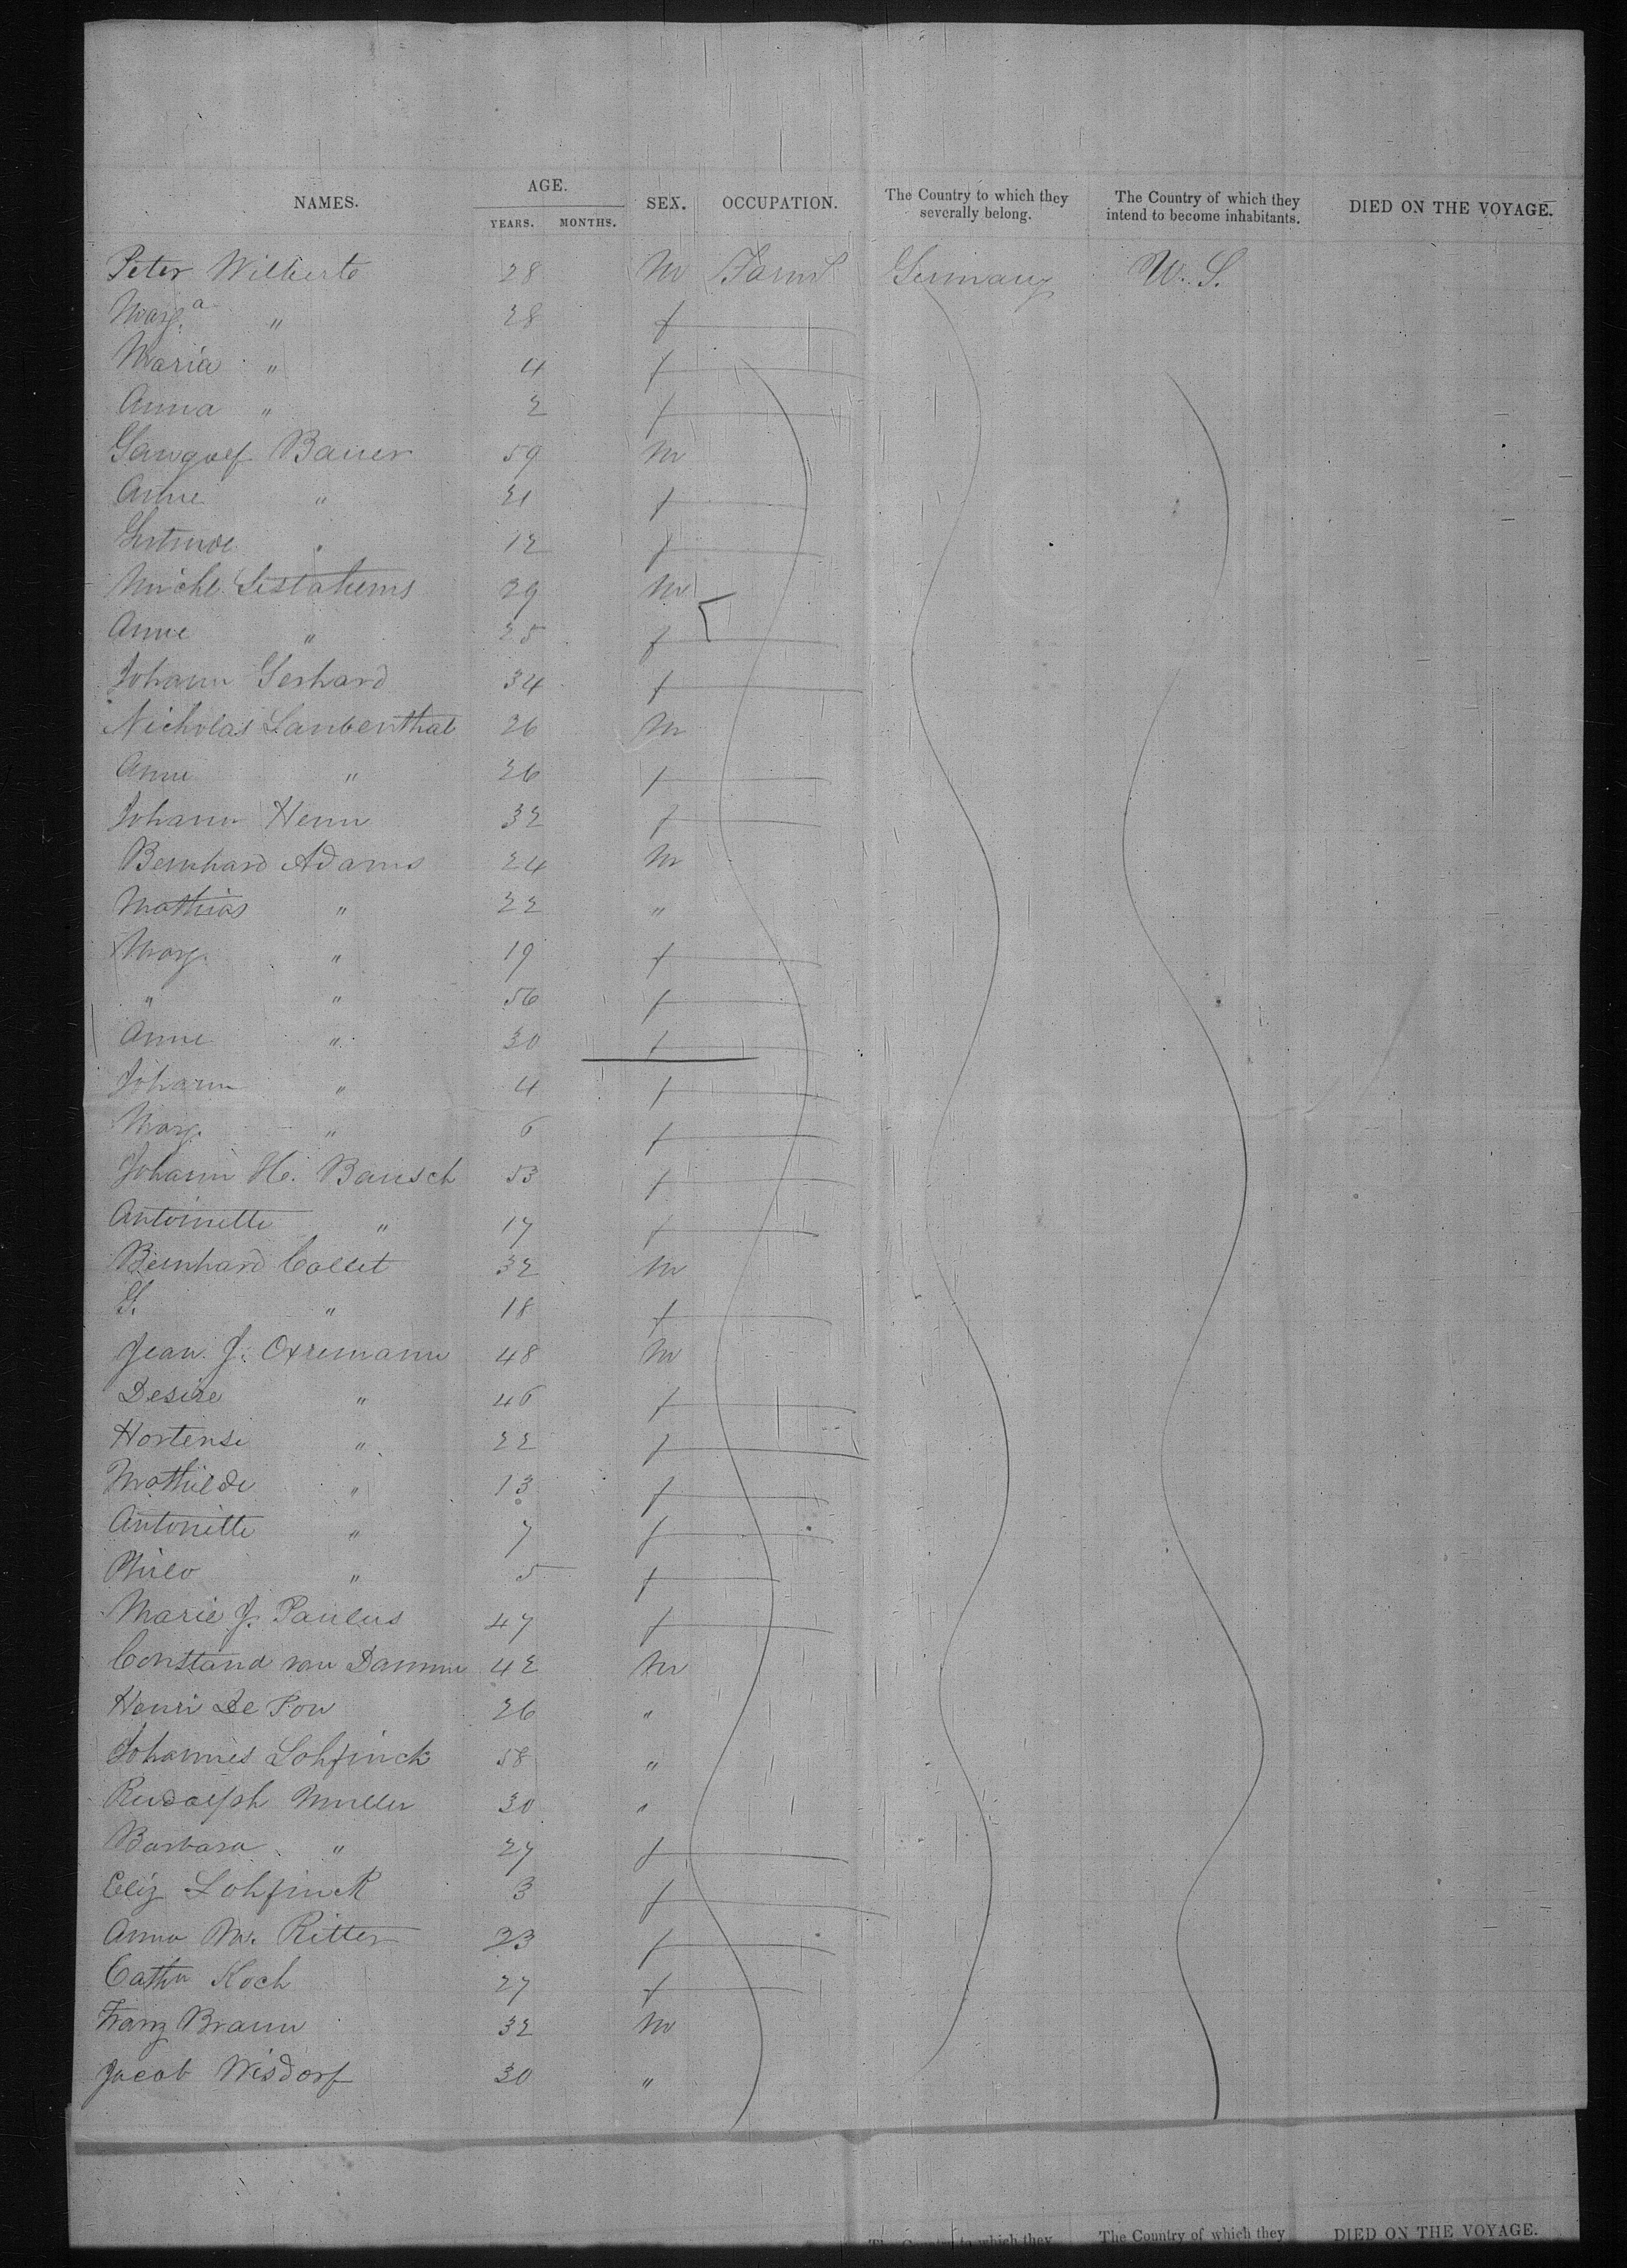 NAMES. AGE. SEX. OCCUPATION. The Country to which they severally belong. The Country of which they intend to become inhabitants. DIED ON THE VOYAGE.
YEARS. MONTHS.
Peter Wilberts 28 M Farmr Germany U. S.
Marg.a " 28 f
Maria " 4 f
Anna " 2 f
Gangolf Bauer 59 M
Anne " 21 f
Gertrude " 12 f
Michl 29 M
Anne " 25 f
Johann Gerhard 34 f
Nicholas Laubenthal 26 M
Anne " 26 f
Johann Henn 32 f
Bernhard Adams 24 M
Mathias " 22 "
Marg. " 19 f
" " 56 f
Anne " 30 f
Johann " 4 f
Marg. " 6 f
Johann H. Bausch 53 f
Antoinette " 17 f
Bernhard Collet 32 M
G. " 18 f
Jean J. Oxremann 48 M
Desire " 46 f
Hortense " 22 f
Mathilde " 13 f
Antoinette " 7 f
Philo " 5 f
Marie J. Paulus 47 f
Constand van Damme 42 M
Henri De Pow 26 "
Johannes Lohfinck 58 "
Rudolph Muller 30 "
Barbara " 27 f
Eliz Lohfinck 3 f
Anna M. Ritter 23 f
Cathn Koch 27 f
Franz Braun 32 M
Jacob Wisdorf 30 "
The Country to which they The Country of which they DIED ON THE VOYAGE.